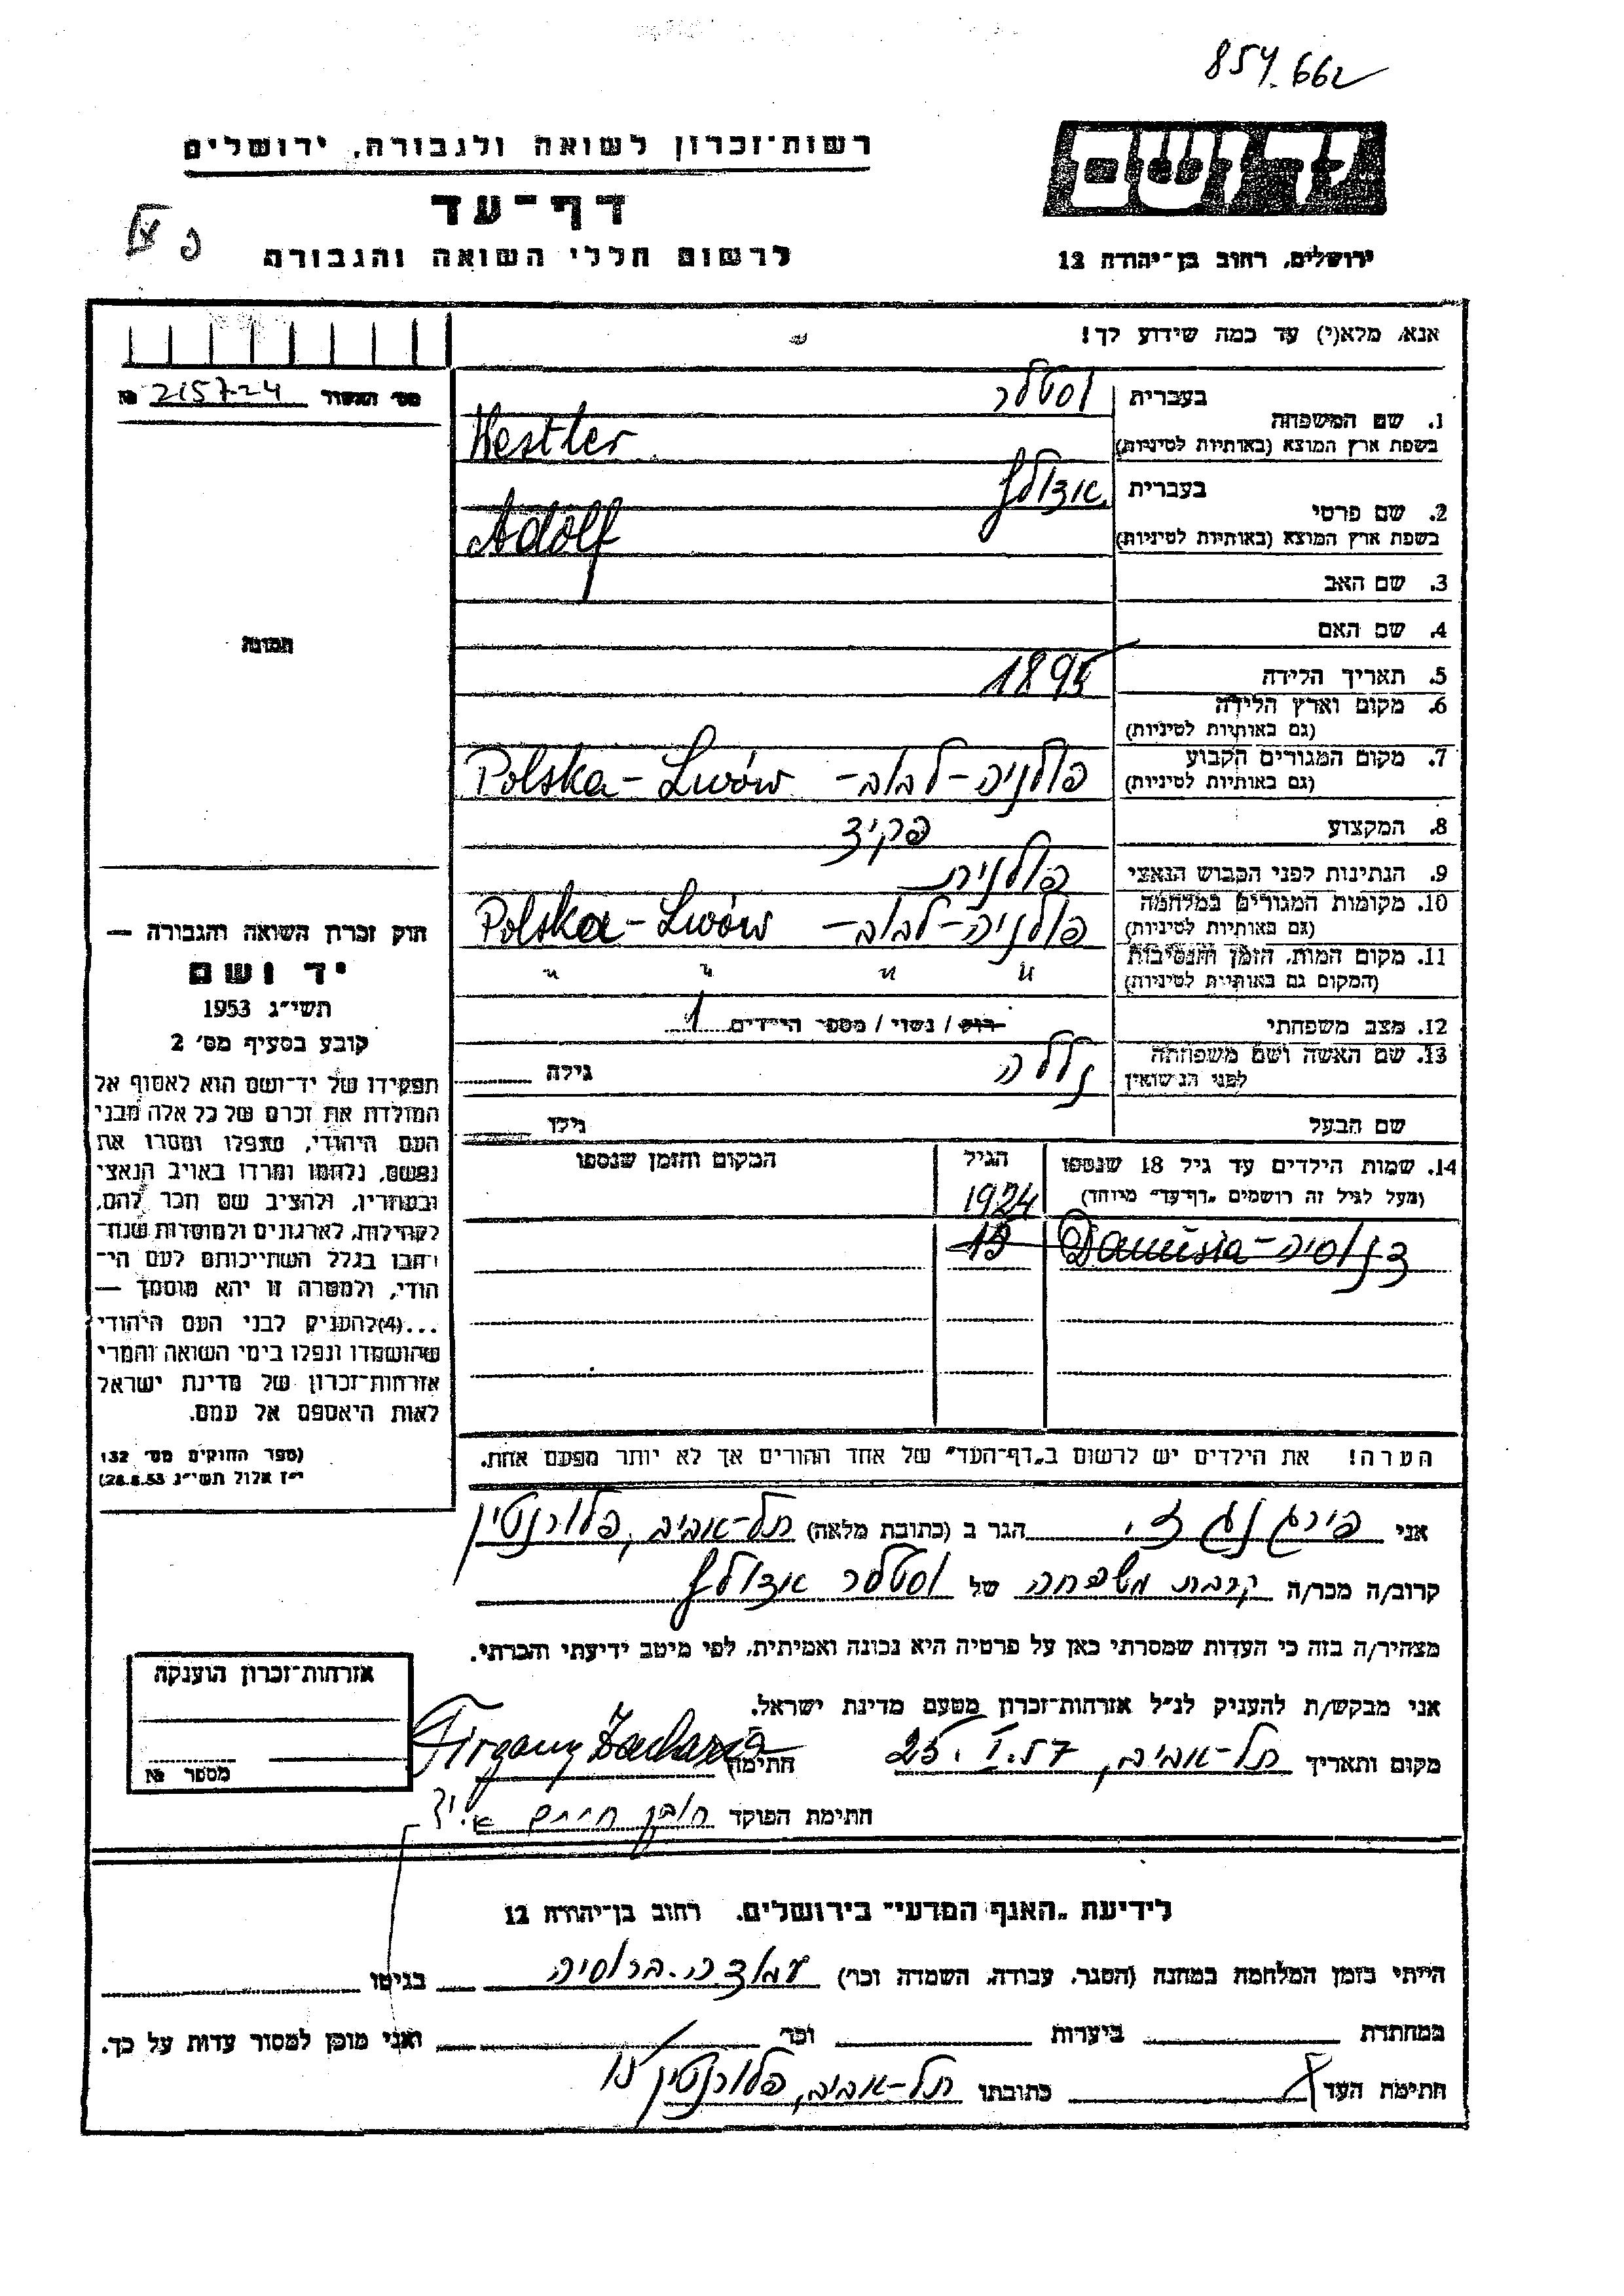 854.662
רשות־זכרון לשואה ולגבורה, ירושלים
יד ושם
דף־עד
לרשום חללי השואה והגבורה
ירושלים, רחוב בן־יהודה 12
אנא, מלא(י) עד כמה שידוע לך!
מס׳ האשור 215724 №
בעברית וסטלר
1. שם המשפחה
בשפת ארץ המוצא (באותיות לטיניות) Westler
בעברית אדולף
2. שם פרטי
בשפת ארץ המוצא (באותיות לטיניות) Adolf
3. שם האב
4. שם האם
תמונה
5. תאריך הלידה 1895
6. מקום וארץ הלידה
(גם באותיות לטיניות)
7. מקום המגורים הקבוע
(גם באותיות לטיניות) פולניה-לבוב- Polska-Lwów
8. המקצוע פקיד
9. הנתינות לפני הכבוש הנאצי פולנית
10. מקומות המגורים במלחמה
(גם באותיות לטיניות) פולניה-לבוב- Polska-Lwów
11. מקום המות, הזמן והנסיבות
(המקום גם באותיות לטיניות) " " " "
12. מצב משפחתי רווק / נשוי / מספר הילדים 1
13. שם האשה ושם משפחתה
לפני הנישואין גילה
שם הבעל גילו
14. שמות הילדים עד גיל 18 שנספו הגיל המקום והזמן שנספו
(מעל לגיל זה רושמים „דף־עד״ מיוחד) 1924
חוק זכרון השואה והגבורה —
יד ושם
תשי״ג 1953
קובע בסעיף מס׳ 2
תפקידו של יד־ושם הוא לאסוף אל
המולדת את זכרם של כל אלה מבני
העם היהודי, שנפלו ומסרו את
נפשם, נלחמו ומרדו באויב הנאצי
ובעוזריו, ולהציב שם וזכר להם,
לקהילות, לארגונים ולמוסדות שנח־
רבו בגלל השתייכותם לעם הי־
הודי, ולמטרה זו יהא מוסמך —
...(4)להעניק לבני העם היהודי
שהושמדו ונפלו בימי השואה והמרי
אזרחות־זכרון של מדינת ישראל
לאות היאספם אל עמם.
(ספר החוקים מס׳ 132
י״ז אלול תשי״ג 28.8.53)
הערה! את הילדים יש לרשום ב„דף־העד״ של אחד ההורים אך לא יותר מפעם אחת.
אני הגר ב (כתובת מלאה) תל-אביב, פלורנטין
קרוב/ה מכר/ה קרבת משפחה של וסטלר אדולף
מצהיר/ה בזה כי העדות שמסרתי כאן על פרטיה היא נכונה ואמיתית, לפי מיטב ידיעתי והכרתי.
אני מבקש/ת להעניק לנ״ל אזרחות־זכרון מטעם מדינת ישראל.
מקום ותאריך תל-אביב, 25.I.57 חתימה
חתימת הפוקד
אזרחות־זכרון הוענקה
מספר №
לידיעת „האגף המדעי״ בירושלים. רחוב בן־יהודה 12
הייתי בזמן המלחמה במחנה (הסגר, עבודה, השמדה וכו׳) עבודה ברוסיה בגיטו
במחתרת ביערות וכו׳ ואני מוכן למסור עדות על כך.
חתימת העד כתובתו תל-אביב, פלורנטין 15